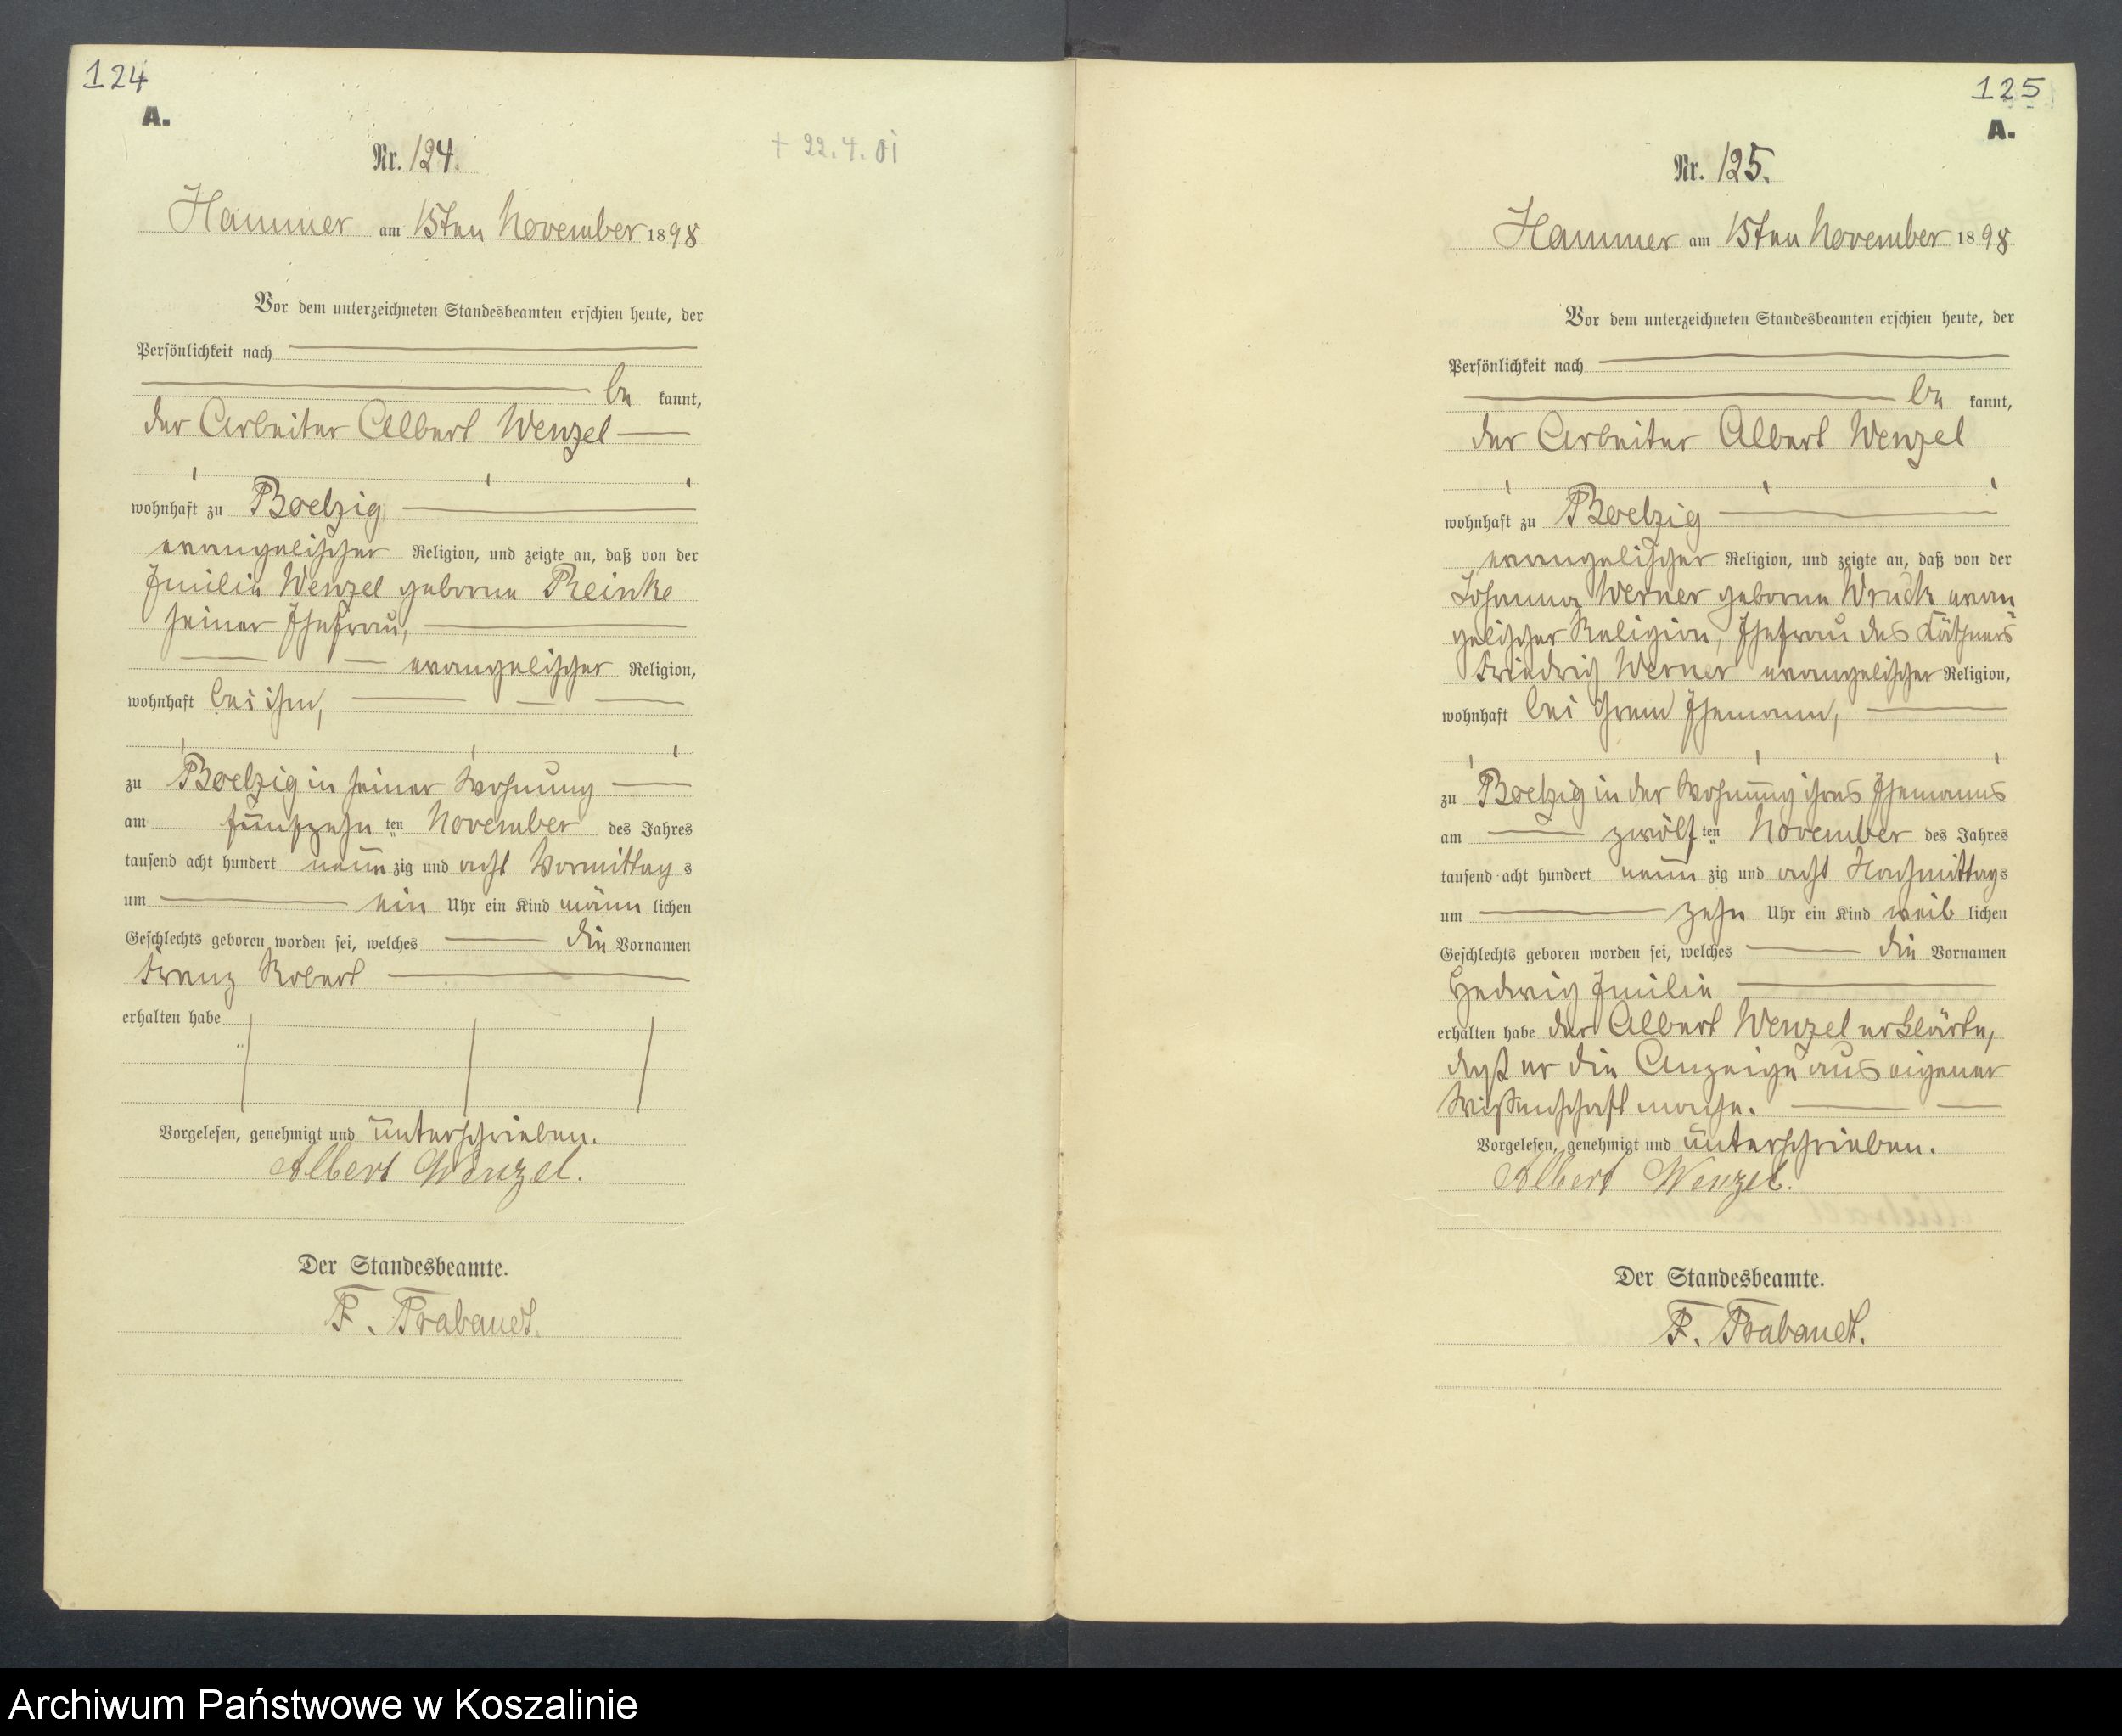 124
A.
Nr. 124.
+ 22.4.01
Hammer am 15ten November 1898
Vor dem unterzeichneten Standesbeamten erschien heute, der
Persönlichkeit nach
be kannt,
der Arbeiter Albert Wenzel
wohnhaft zu Boelzig
evangelischer Religion, und zeigte an, daß von der
Emilie Wenzel geborne Reinke
seiner Ehefrau,
evangelischer Religion,
wohnhaft bei ihm,
zu Boelzig in seiner Wohnung
am fünfzehn ten November des Jahres
tausend acht hundert neun zig und acht Vormittag s
um ein Uhr ein Kind männ lichen
Geschlechts geboren worden sei, welches die Vornamen
Franz Robert
erhalten habe
Vorgelesen, genehmigt und unterschrieben.
Albert Wenzel.
Der Standesbeamte.
F. Brabandt.
125
A.
Nr. 125.
Hammer am 15ten November 1898
Vor dem unterzeichneten Standesbeamten erschien heute, der
Persönlichkeit nach
be kannt,
der Arbeiter Albert Wenzel
wohnhaft zu Boelzig
evangelischer Religion, und zeigte an, daß von der
Johanna Werner geborne Wruck evan
gelischer Religion, Ehefrau des Käthners
Friedrich Werner evangelischer Religion,
wohnhaft bei ihrem Ehemann,
zu Boelzig in der Wohnung ihres Ehemanns
am zwölf ten November des Jahres
tausend acht hundert neun zig und acht Nachmittags
um zehn Uhr ein Kind weib lichen
Geschlechts geboren worden sei, welches die Vornamen
Hedwig Emilie
erhalten habe der Albert Wenzel erklärte,
daß er die Anzeige aus eigener
Wissenschaft mache.
Vorgelesen, genehmigt und unterschrieben.
Albert Wenzel.
Der Standesbeamte.
F. Brabandt.
Archiwum Państwowe w Koszalinie